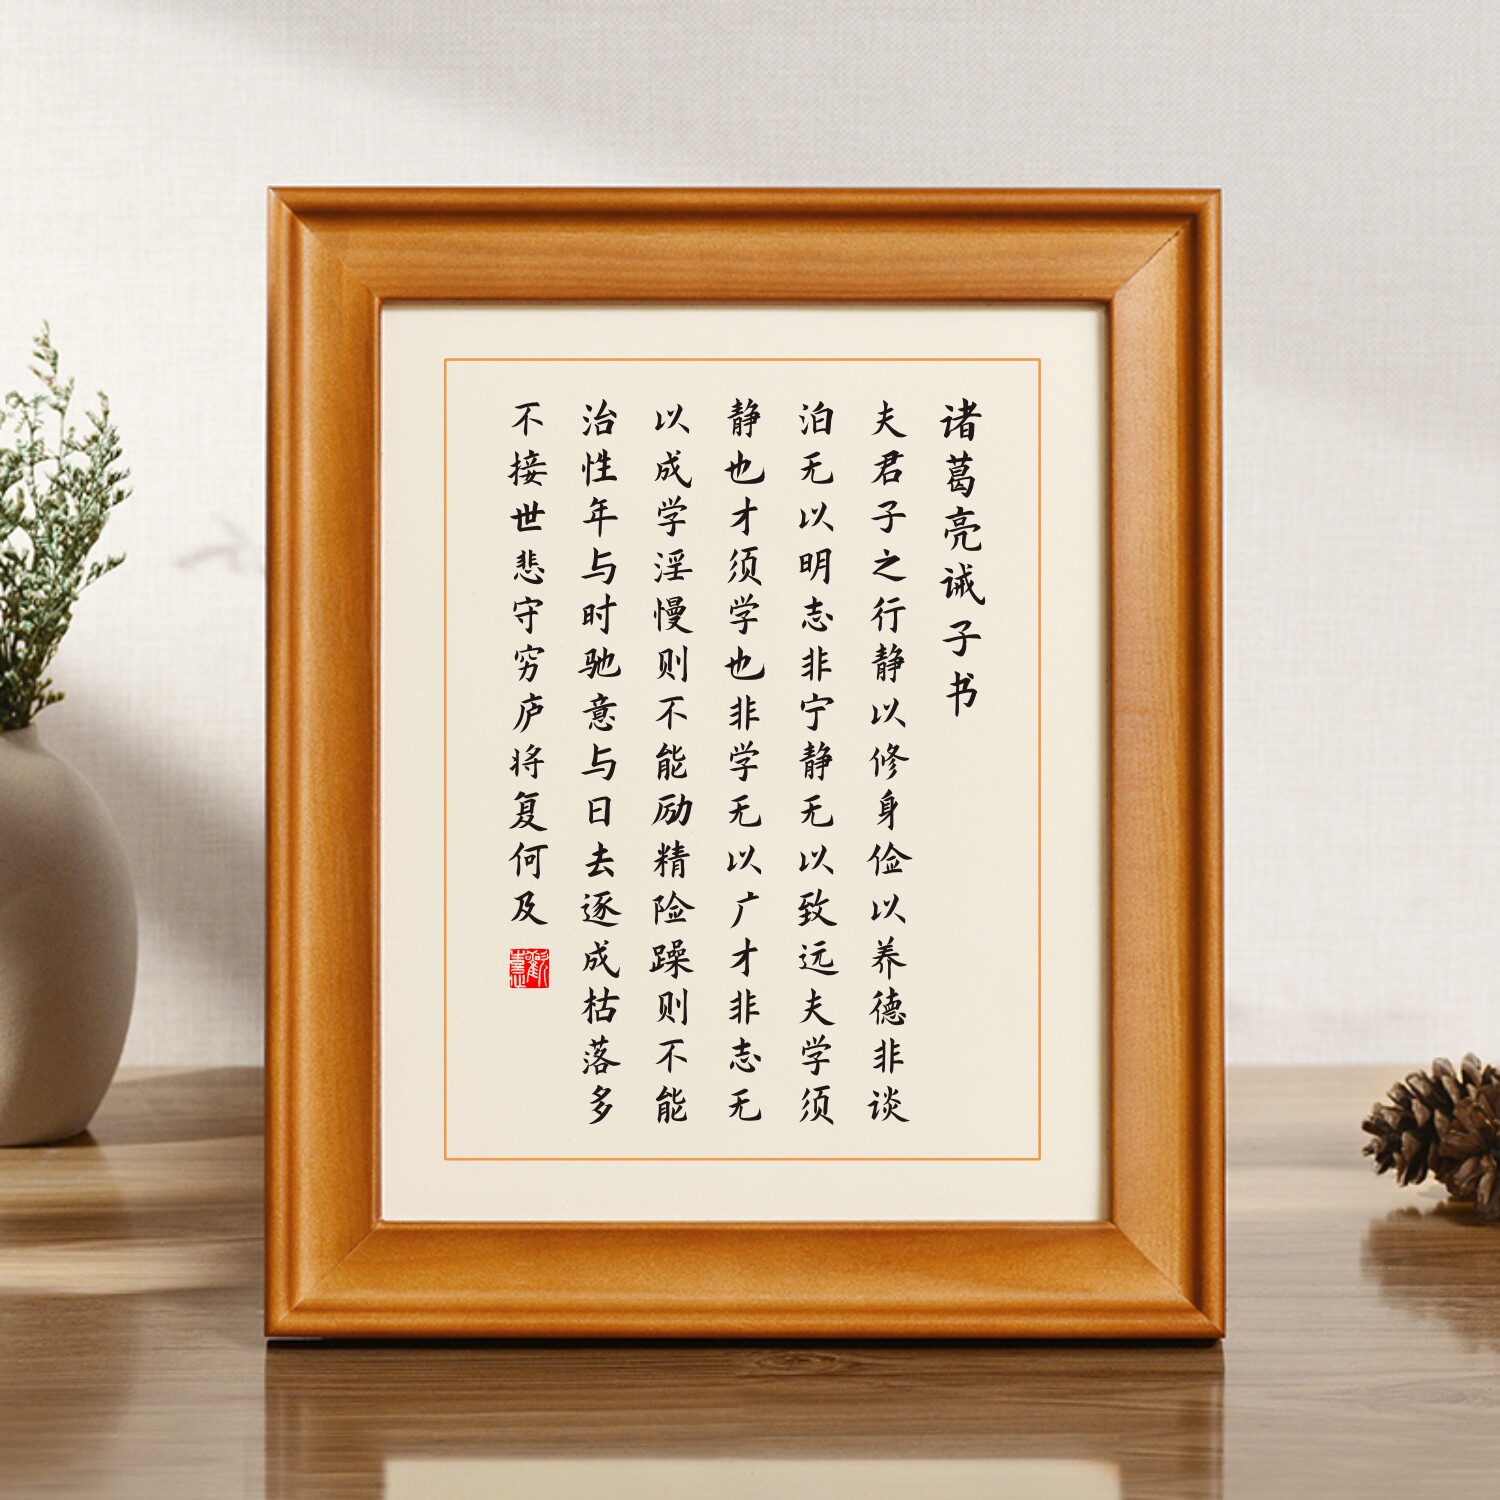 诸葛亮诫子书
夫君子之行静以修身俭以养德非谈
泊无以明志非宁静无以致远夫学须
静也才须学也非学无以广才非志无
以成学淫慢则不能励精险躁则不能
治性年与时驰意与日去遂成枯落多
不接世悲守穷庐将复何及